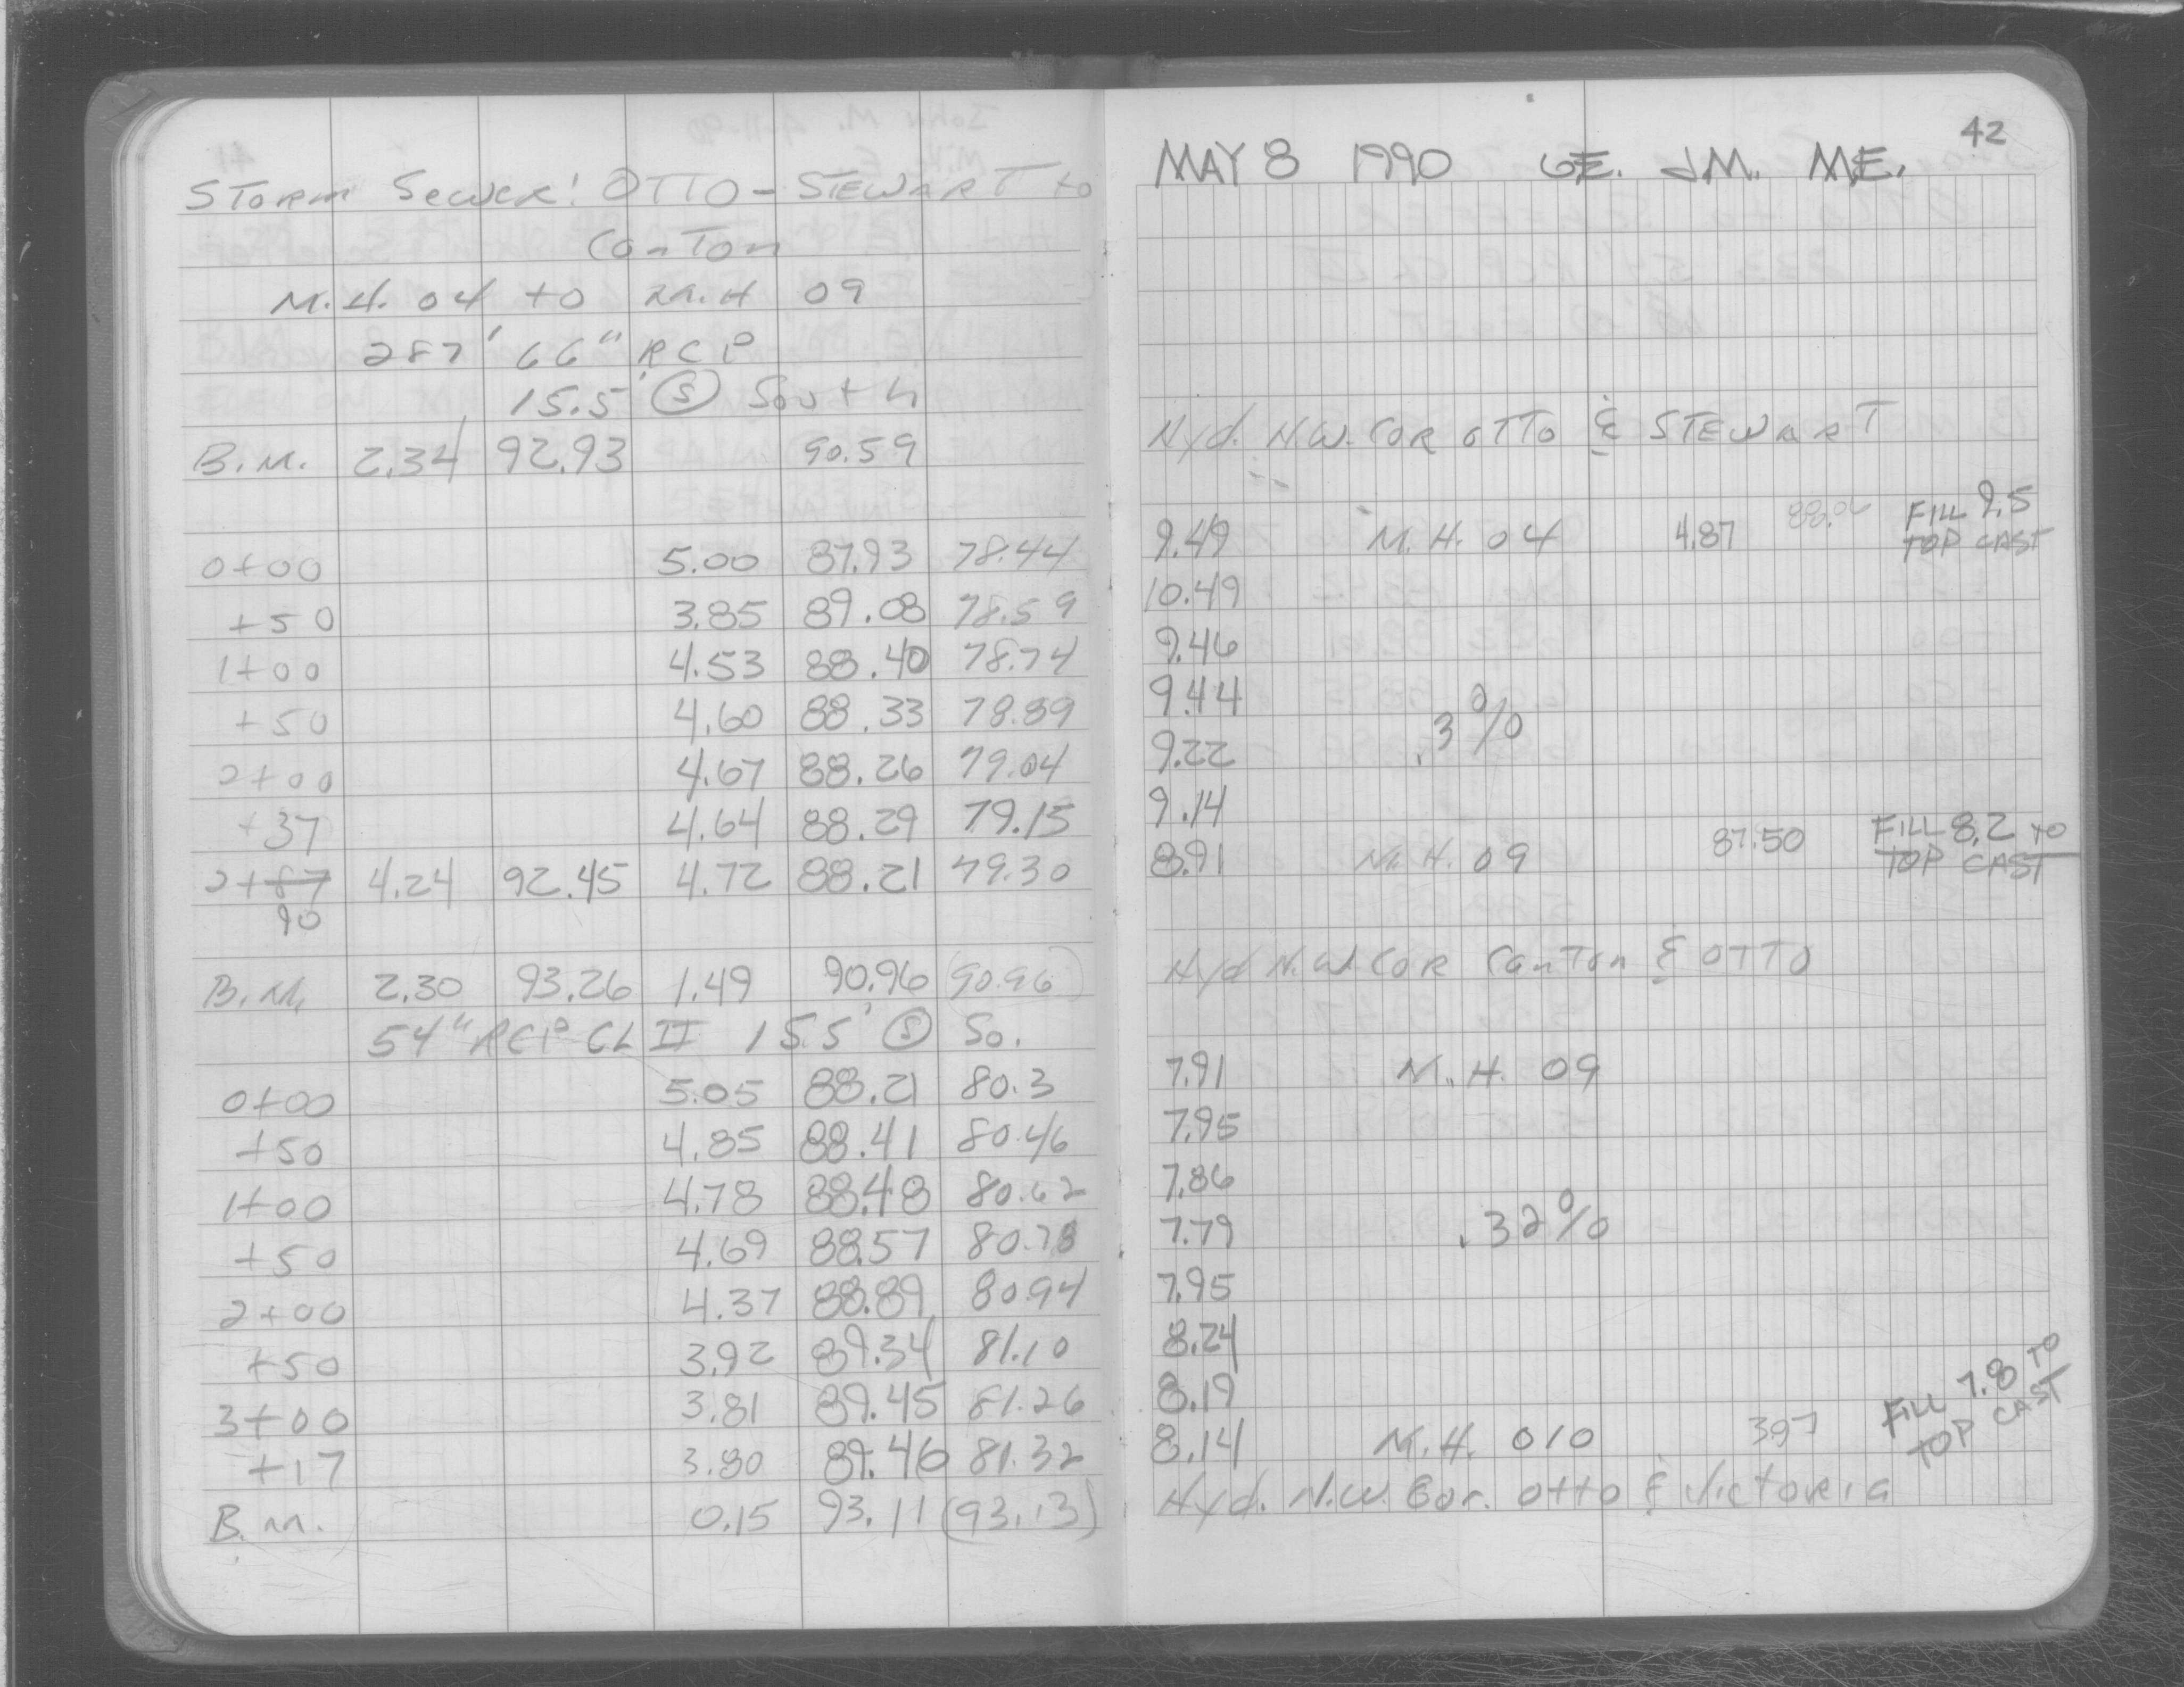 STORM SEWER! OTTO - STEWART to
Canton
M.H. 04 to M.H 09
287' 66" RCP
15.5' (S) South
B.M. 2.34 92.93 90.59
0+00 5.00 87.93 78.44
+50 3.85 89.08 78.59
1+00 4.53 88.40 78.74
+50 4.60 88.33 78.89
2+00 4.67 88.26 79.04
+37 4.64 88.29 79.15
2+87 4.24 92.45 4.72 88.21 79.30
90
B.M. 2.30 93.26 1.49 90.96 (90.96)
54" RCP CL II 15.5' (S) So.
0+00 5.05 88.21 80.3
+50 4.85 88.41 80.46
1+00 4.78 88.48 80.62
+50 4.69 88.57 80.78
2+00 4.37 88.89 80.94
+50 3.92 89.34 81.10
3+00 3.81 89.45 81.26
+17 3.80 89.46 81.32
B.M. 0.15 93.11 (93.13)
42
MAY 8 1990 GE. JM. ME.
Hyd. N.W. COR OTTO & STEWART
9.49 M.H. 04 4.87 88.06 FILL 9.5
TOP CAST
10.49
9.46
9.44
.3%
9.22
9.14
8.91 M.H. 09 87.50 FILL 8.2 TO
TOP CAST
Hyd N.W. COR Canton & OTTO
7.91 M.H. 09
7.95
7.86
7.79 .32%
7.95
8.24
8.19
8.14 M.H. 010 397 FILL 7.8 TO
TOP CAST
Hyd. N.W. Cor. Otto & Victoria